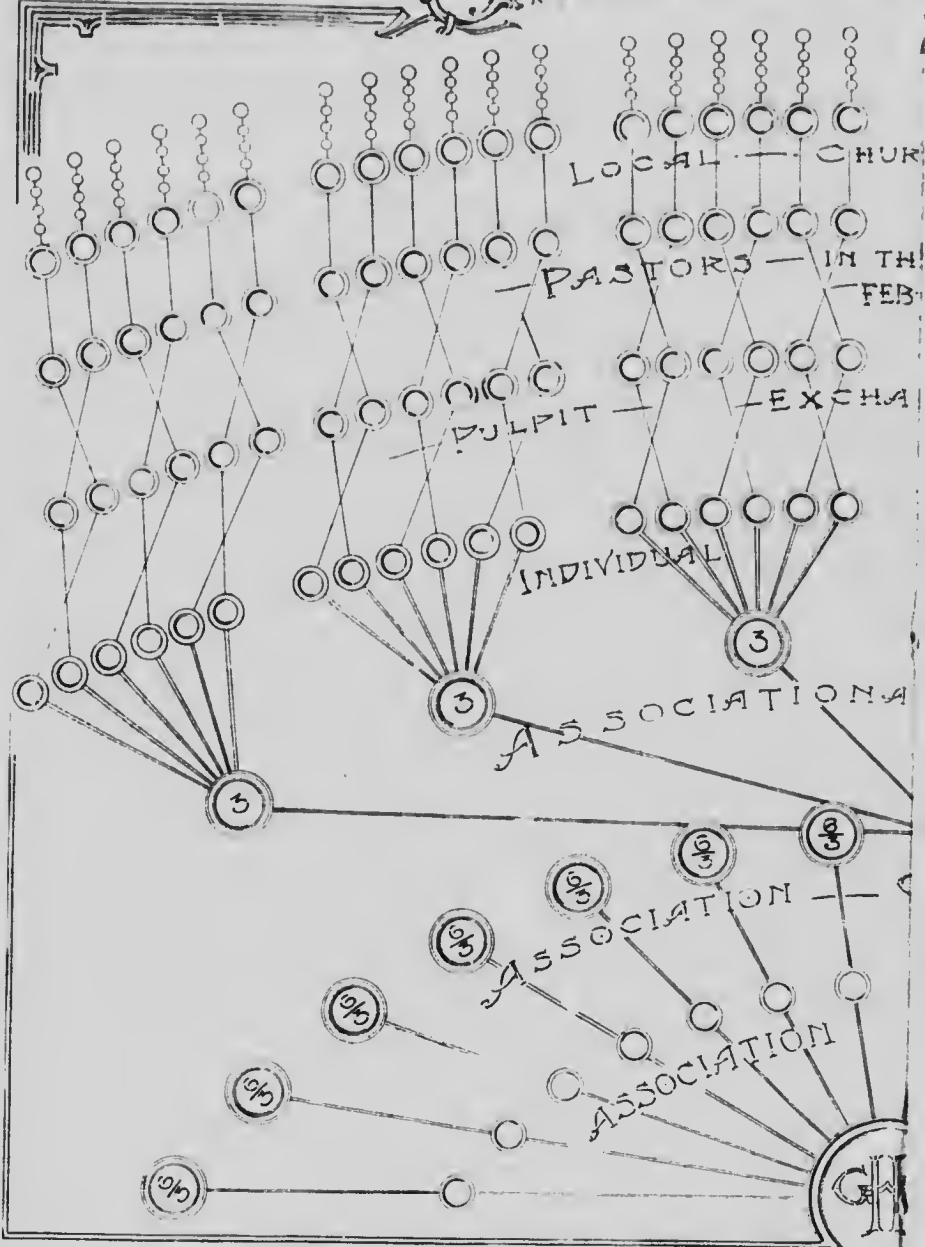 LOCAL — CHUR
— PASTORS — IN TH
— FEB
— PULPIT — — EXCHA
INDIVIDUAL
3
3
ASSOCIATIONA
3
6/3
8/3
6/3
ASSOCIATION —
6/3
6/3
ASSOCIATION
6/3
6/3